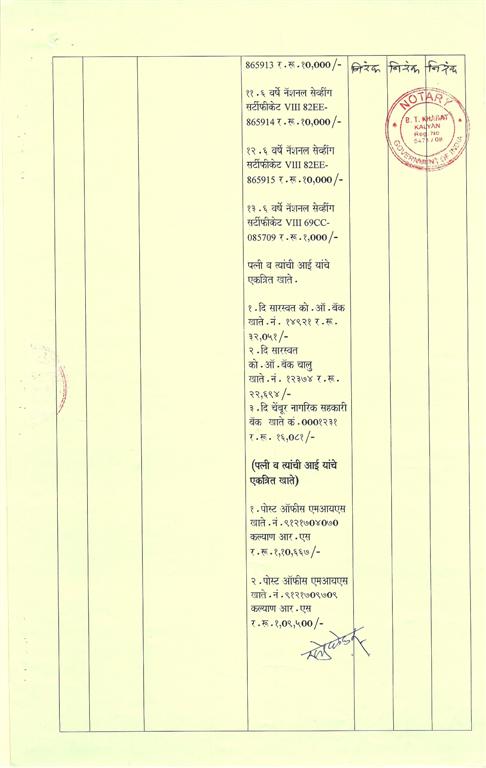 865913 र.रू.१०,०००/-
निरंक निरंक निरंक
११.६ वर्षे नॅशनल सेव्हींग
सर्टीफीकेट VIII 82EE-
865914 र.रू.१०,०००/-
१२.६ वर्षे नॅशनल सेव्हींग
सर्टीफीकेट VIII 82EE-
865915 र.रू.१०,०००/-
१३.६ वर्षे नॅशनल सेव्हींग
सर्टीफीकेट VIII 69CC-
085709 र.रू.१,०००/-
पत्नी व त्यांची आई यांचे
एकत्रित खाते.
१.दि सारस्वत को.ऑ.बँक
खाते.नं. १४९२१ र.रू.
३२,०५१/-
२.दि सारस्वत
को.ऑ.बँक चालु
खाते.नं. १२३७४ र.रू.
२२,६९४/-
३.दि चेंबूर नागरिक सहकारी
बँक खाते कं.000१२३१
र.रू. १६,०८१/-
(पत्नी व त्यांची आई यांचे
एकत्रित खाते)
१.पोस्ट ऑफीस एमआयएस
खाते.नं.९१२१७०४०७०
कल्याण आर.एस
र.रू.१,१०,६६७/-
२.पोस्ट ऑफीस एमआयएस
खाते.नं.९१२१७०९७०९
कल्याण आर.एस
र.रू.१,०९,५००/-
NOTARY
B. T. KHARAT
KALYAN
Reg. No
5471 / 08
GOVERNMENT OF INDIA